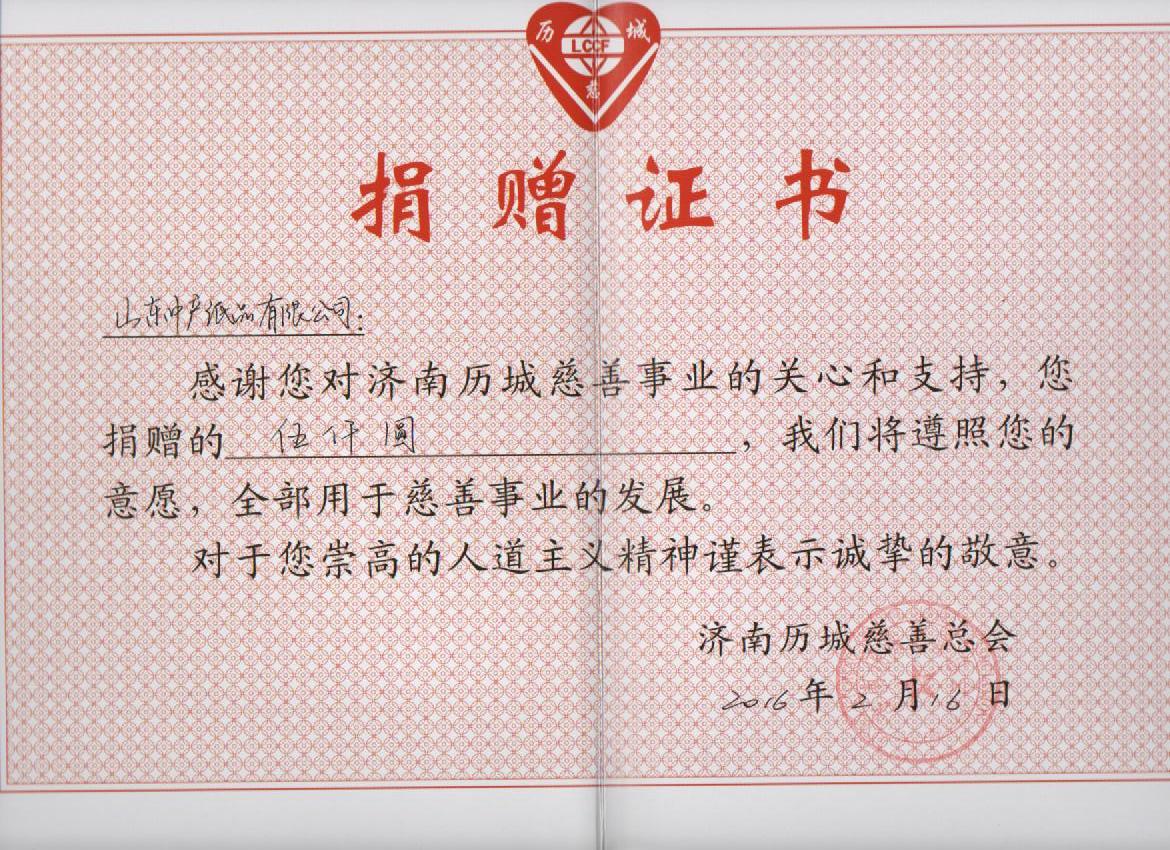 历城
LCCF
慈
捐赠证书
山东中产纸品有限公司：
感谢您对济南历城慈善事业的关心和支持，您
捐赠的 伍仟圆 ，我们将遵照您的
意愿，全部用于慈善事业的发展。
对于您崇高的人道主义精神谨表示诚挚的敬意。
济南历城慈善总会
2016年2月16日